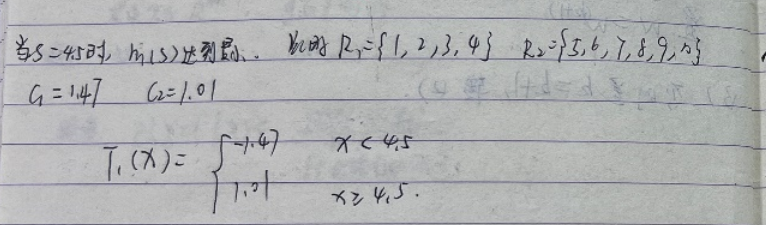 当S=4.5时, m(s)达到最小. 此时 R₁={1,2,3,4} R₂={5,6,7,8,9,10}
C₁=1.47 C₂=1.01
T₁(x)= { -1.47 x<4.5
1.01 x≥4.5.